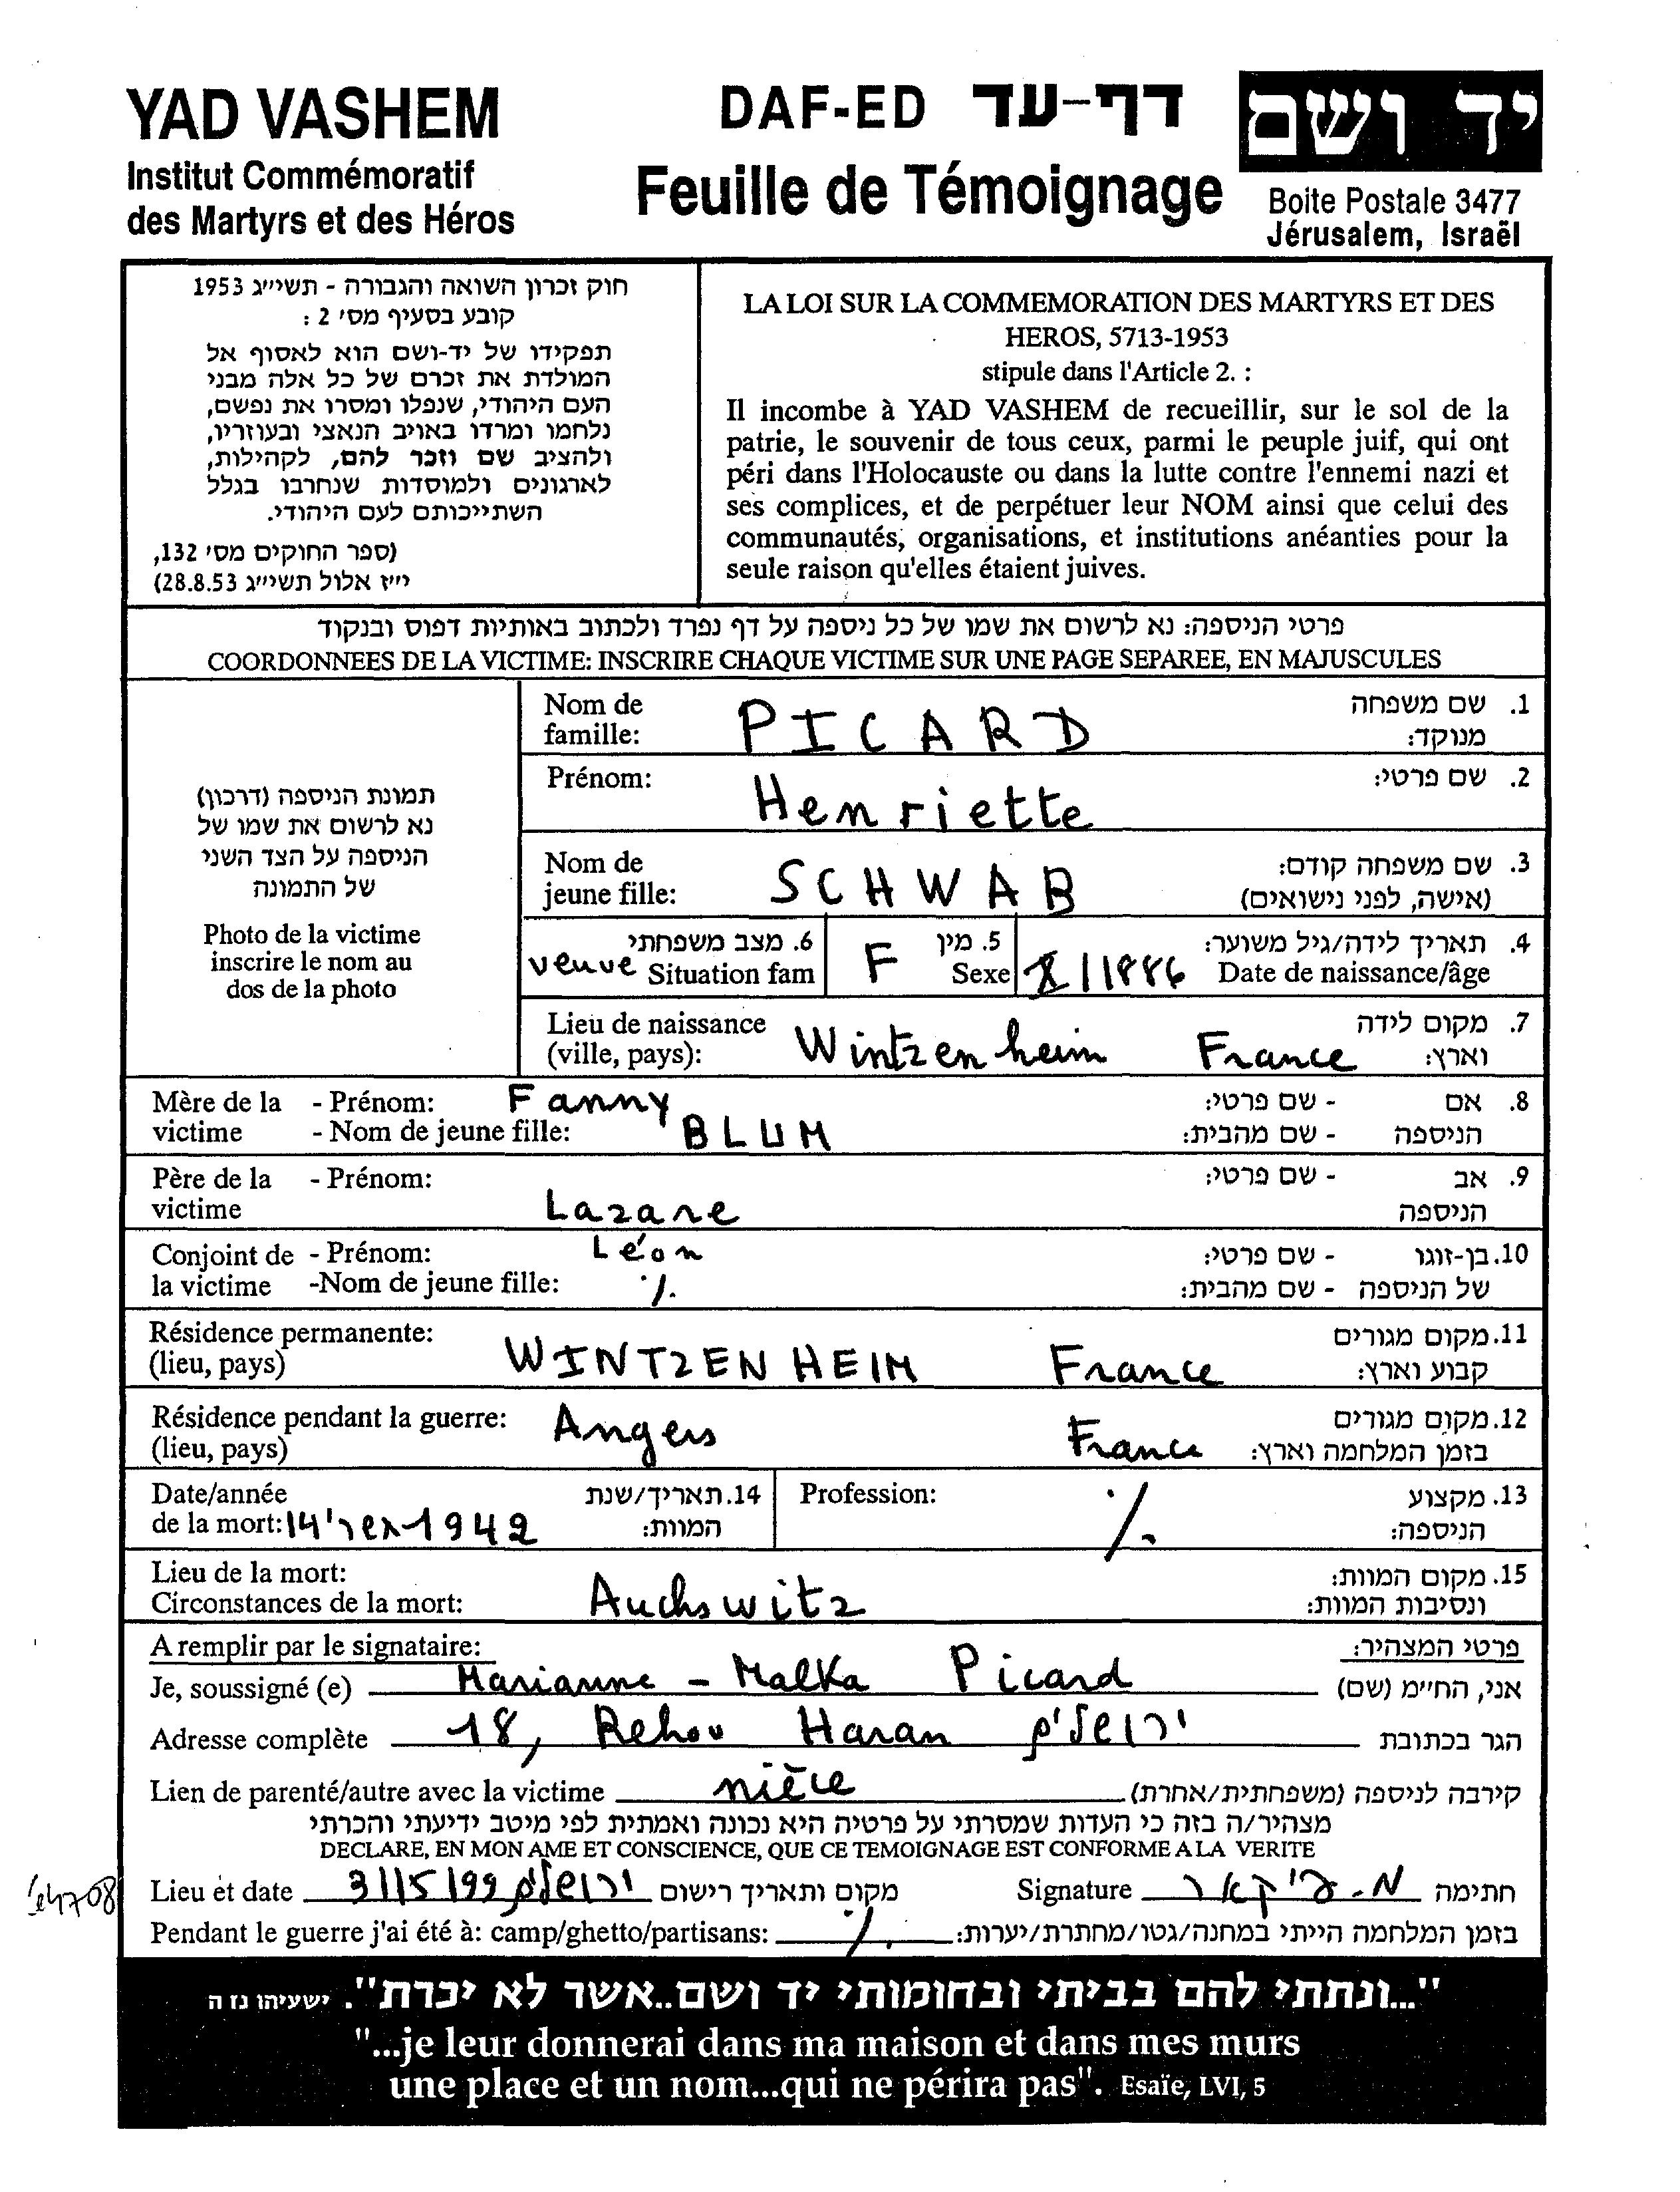 YAD VASHEM
Institut Commémoratif
des Martyrs et des Héros
DAF-ED דף-עד
Feuille de Témoignage
יד ושם
Boite Postale 3477
Jérusalem, Israël
חוק זכרון השואה והגבורה - תשי״ג 1953
קובע בסעיף מס׳ 2 :
תפקידו של יד-ושם הוא לאסוף אל
המולדת את זכרם של כל אלה מבני
העם היהודי, שנפלו ומסרו את נפשם,
נלחמו ומרדו באויב הנאצי ובעוזריו,
ולהציב שם וזכר להם, לקהילות,
לארגונים ולמוסדות שנחרבו בגלל
השתייכותם לעם היהודי.
(ספר החוקים מס׳ 132,
י״ז אלול תשי״ג 28.8.53)
LA LOI SUR LA COMMEMORATION DES MARTYRS ET DES
HEROS, 5713-1953
stipule dans l'Article 2. :
Il incombe à YAD VASHEM de recueillir, sur le sol de la
patrie, le souvenir de tous ceux, parmi le peuple juif, qui ont
péri dans l'Holocauste ou dans la lutte contre l'ennemi nazi et
ses complices, et de perpétuer leur NOM ainsi que celui des
communautés, organisations, et institutions anéanties pour la
seule raison qu'elles étaient juives.
פרטי הניספה: נא לרשום את שמו של כל ניספה על דף נפרד ולכתוב באותיות דפוס ובנקוד
COORDONNEES DE LA VICTIME: INSCRIRE CHAQUE VICTIME SUR UNE PAGE SEPAREE, EN MAJUSCULES
תמונת הניספה (דרכון)
נא לרשום את שמו של
הניספה על הצד השני
של התמונה
Photo de la victime
inscrire le nom au
dos de la photo
Nom de famille: PICARD 1. שם משפחה מנוקד:
Prénom: Henriette 2. שם פרטי:
Nom de jeune fille: SCHWAB 3. שם משפחה קודם: (אישה, לפני נישואים)
veuve 6. מצב משפחתי Situation fam F 5. מין Sexe X/1886 4. תאריך לידה/גיל משוער: Date de naissance/âge
Lieu de naissance (ville, pays): Wintzenheim France 7. מקום לידה וארץ:
Mère de la victime - Prénom: Fanny - שם פרטי: 8. אם הניספה
- Nom de jeune fille: BLUM - שם מהבית:
Père de la victime - Prénom: Lazare - שם פרטי: 9. אב הניספה
Conjoint de la victime - Prénom: Léon - שם פרטי: 10. בן-זוגו של הניספה
-Nom de jeune fille: ./. - שם מהבית:
Résidence permanente: (lieu, pays) WINTZENHEIM France 11. מקום מגורים קבוע וארץ:
Résidence pendant la guerre: (lieu, pays) Angers France 12. מקום מגורים בזמן המלחמה וארץ:
Date/année de la mort: 1942 14. תאריך/שנת המוות: Profession: ./. 13. מקצוע הניספה:
Lieu de la mort: Circonstances de la mort: Auchswitz 15. מקום המוות: ונסיבות המוות:
A remplir par le signataire: פרטי המצהיר:
Je, soussigné (e) Marianne - Malka Picard אני, החיימ (שם)
Adresse complète 18, Rehov Haran ירושלים הגר בכתובת
Lien de parenté/autre avec la victime nièce קירבה לניספה (משפחתית/אחרת)
מצהיר/ה בזה כי העדות שמסרתי על פרטיה היא נכונה ואמתית לפי מיטב ידיעתי והכרתי
DECLARE, EN MON AME ET CONSCIENCE, QUE CE TEMOIGNAGE EST CONFORME A LA VERITE
Lieu et date 31/5/99 ירושלים מקום ותאריך רישום Signature מ. פיקאר חתימה
Pendant le guerre j'ai été à: camp/ghetto/partisans: ./. בזמן המלחמה הייתי במחנה/גטו/מחתרת/יערות:
"...ונתתי להם בביתי ובחומותי יד ושם..אשר לא יכרת". ישעיהו נז ה
"...je leur donnerai dans ma maison et dans mes murs
une place et un nom...qui ne périra pas". Esaïe, LVI, 5